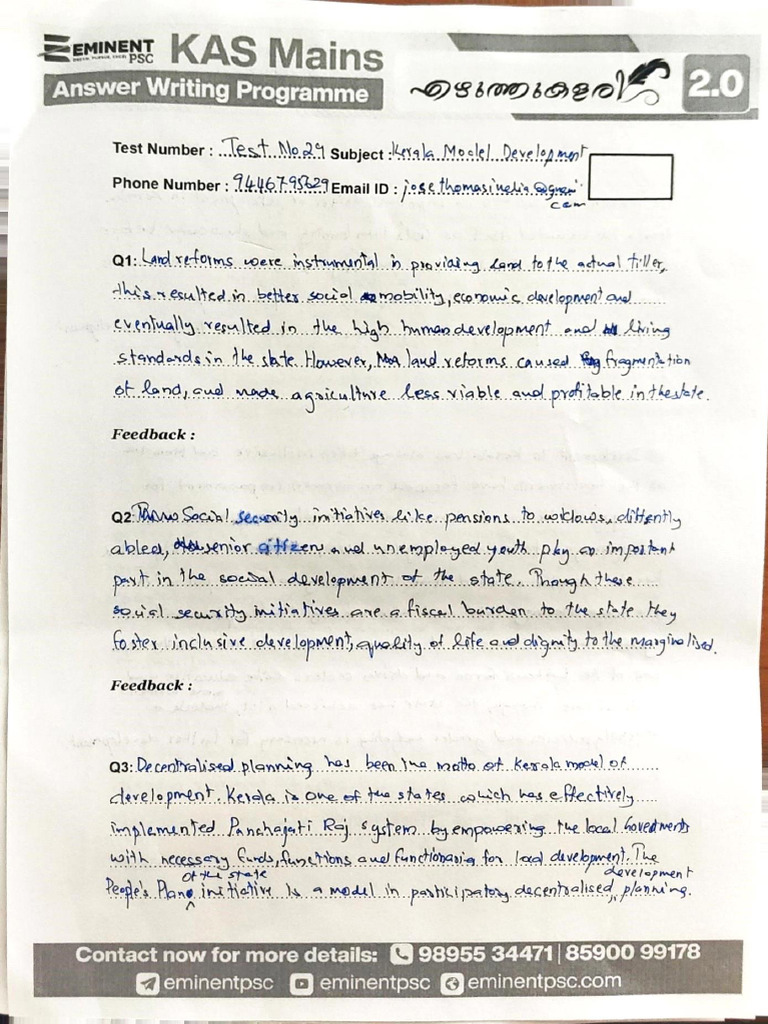 EMINENT PSC KAS Mains
Answer Writing Programme എഴുത്തുകളരി 2.0
Test Number : Test No 29 Subject : Kerala Model Development
Phone Number : 9446795629 Email ID : josethomasinedia@gmai.
com
Q1: Land reforms were instrumental in providing land to the actual tiller,
this resulted in better social mobility, economic development and
eventually resulted in the high human development and living
standards in the state. However, land reforms caused fragmentation
of land, and made agriculture less viable and profitable in the state.
Feedback :
Q2: Social security initiatives like pensions to widows, differently
abled, senior citizen and unemployed youth play an important
part in the social development of the state. Though these
social security initiatives are a fiscal burden to the state they
foster inclusive development, quality of life and dignity to the marginalised.
Feedback :
Q3: Decentralised planning has been the motto of Kerala model of
development. Kerala is one of the states which has effectively
implemented Panchajati Raj system by empowering the local Goverments
with necessary funds, functions and functionaria for local development. The
People's Plan of the state initiative is a model in participatory decentralised development planning.
Contact now for more details: 98955 34471 | 85900 99178
eminentpsc eminentpsc eminentpsc.com